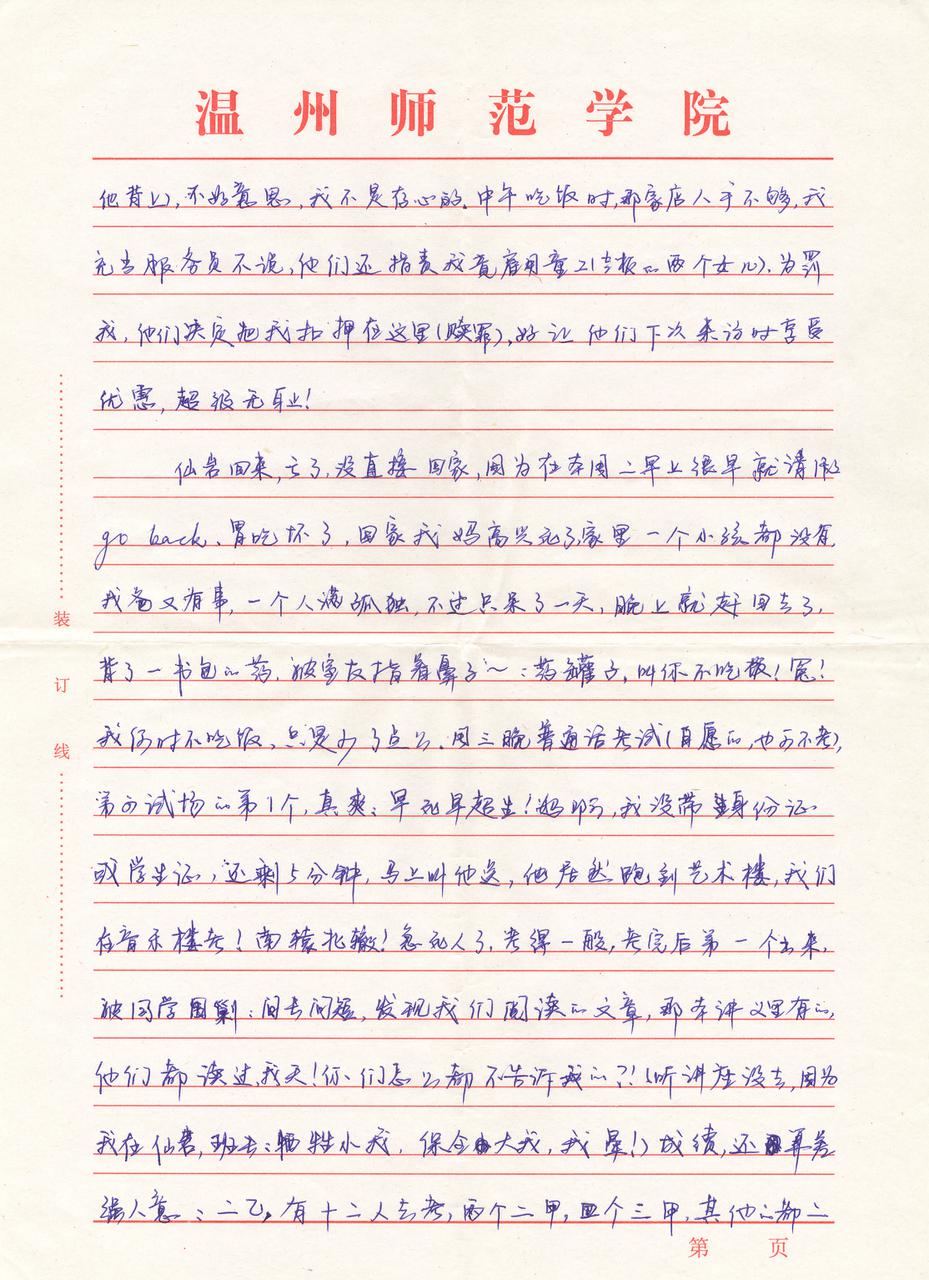 温州师范学院
他背上),不好意思,我不是存心的。中午吃饭时,那家店人手不够,我
充当服务员不说,他们还指责我竟雇用童工(老板的两个女儿)。为罚
我,他们决定把我扣押在这里(赎罪),好让他们下次来访时享受
优惠,超级无耻!
仙岩回来,亡了,没直接回家,因为在本周二早上很早就请假
go back、胃吃坏了,回家我妈高兴死了,家里一个小孩都没有,
我爸又有事,一个人满孤独,不过只呆了一天,晚上就赶回去了,
背了一书包的药,被室友指着鼻子~:药罐子,叫你不吃饭!冤!
我何时不吃饭,只是少了点么。周三晚普通话考试(自愿的,也可不考),
第 试场的第1个,真爽:早死早超生!妈呀,我没带身份证
或学生证,还剩5分钟,马上叫他送,他居然跑到艺术楼,我们
在音乐楼考!南辕北辙!急死人了,考得一般,考完后第一个出来,
被同学围剿:问长问短,发现我们阅读的文章,那本讲义里有的,
他们都读过,我天!你们怎么都不告诉我的?!(听讲座没去,因为
我在仙岩,班长:牺牲小我,保全大我,我晕!)成绩,还算差
强人意:二乙。有十二人去考,两个二甲,四个三甲,其他的都二
装
订
线
第 页